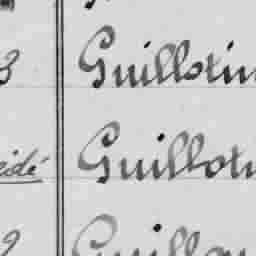 3 Guillotin
cidé Guillotin
2 Guillou